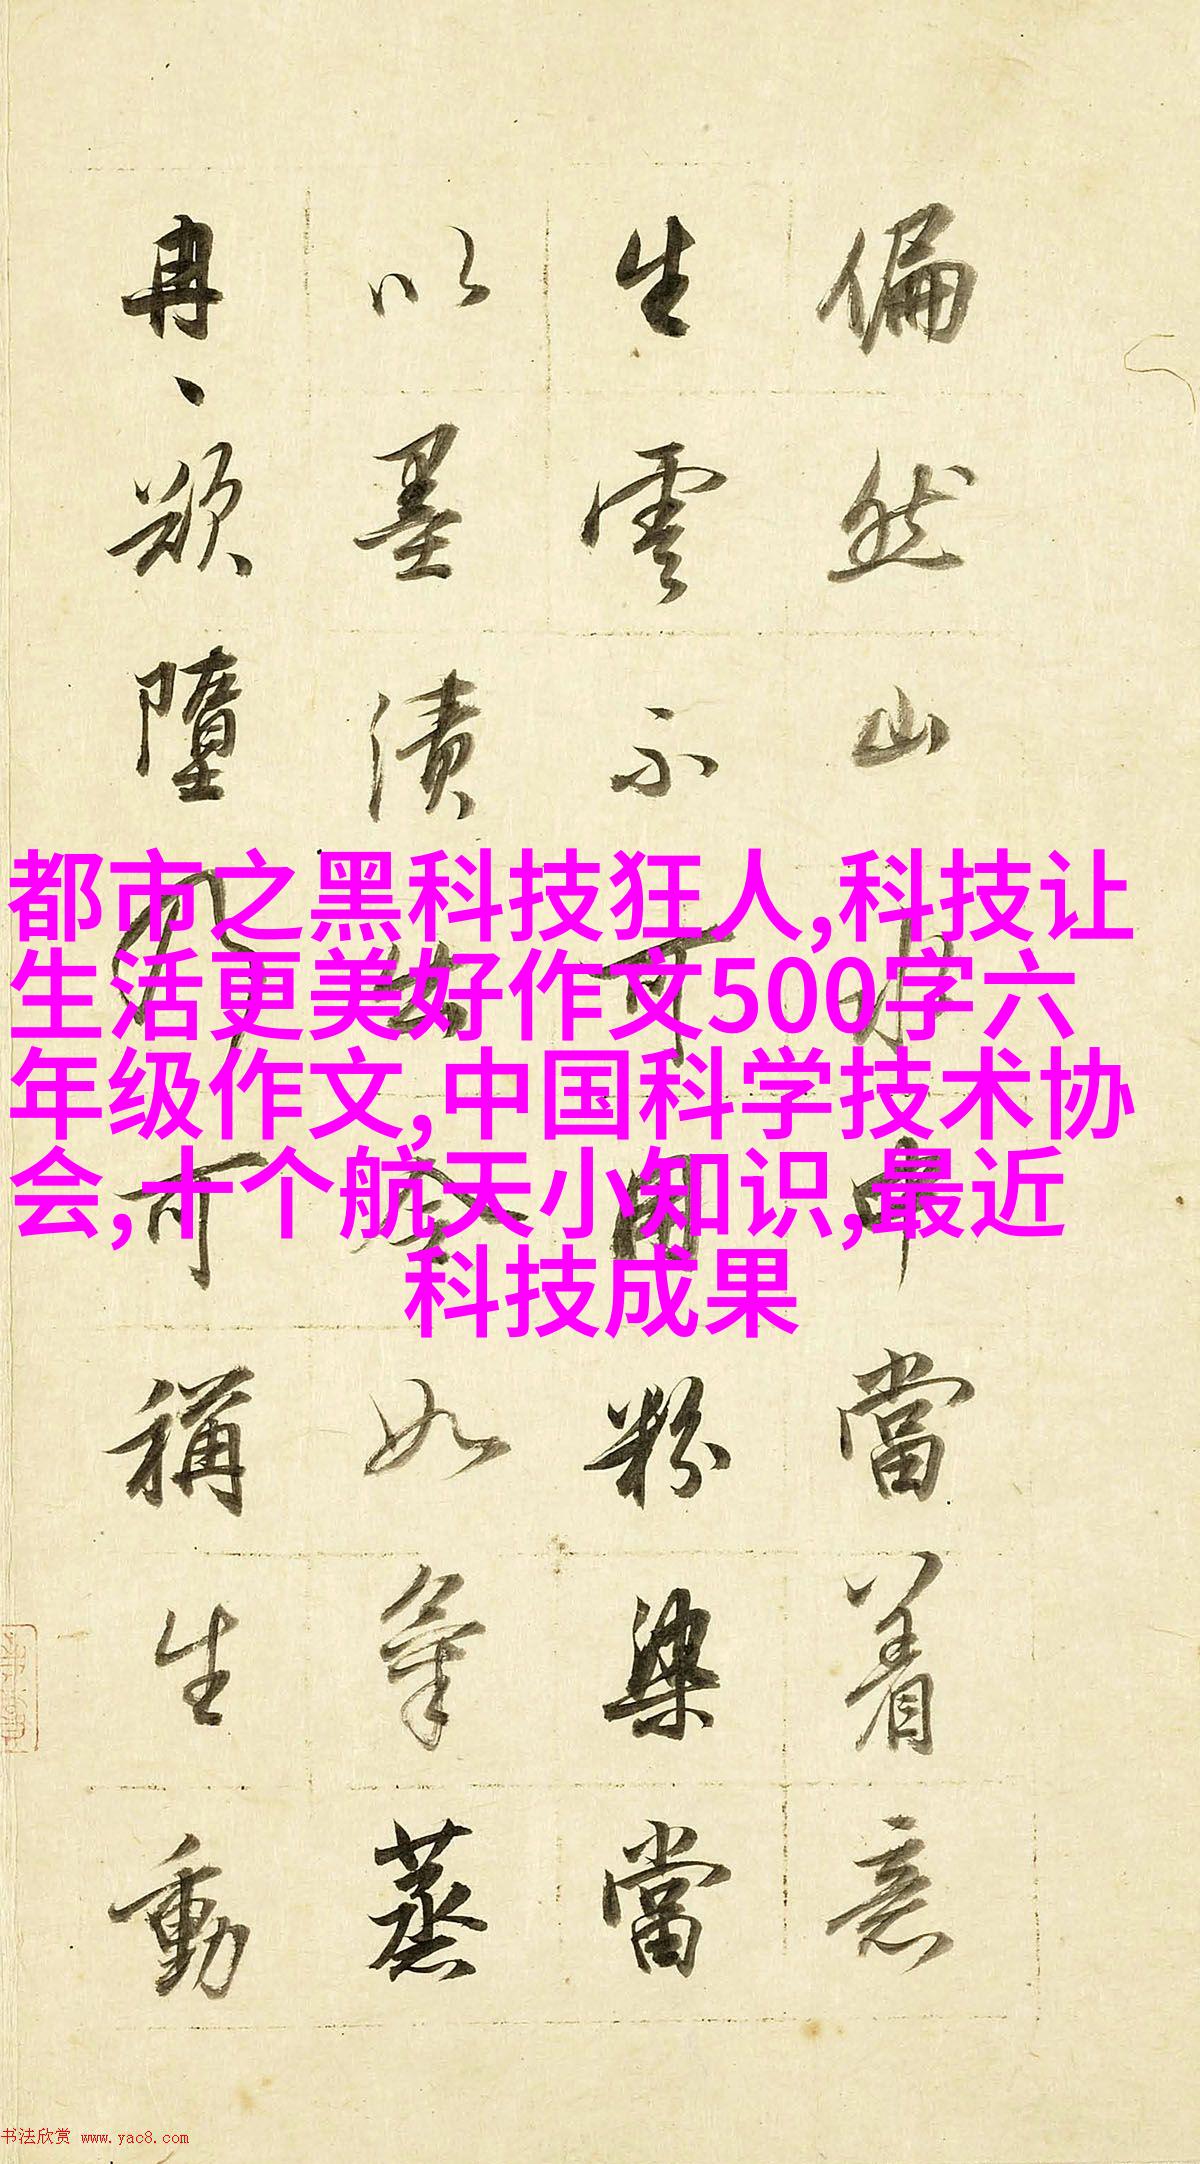 偏然山水中當着意
生雲不可用粉染當
以墨漬出令如氣蒸
冉、欲墮乃可稱生動
都市之黑科技狂人,科技让
生活更美好作文500字六
年级作文,中国科学技术协
会,十个航天小知识,最近
科技成果
书法欣赏 www.yac8.com